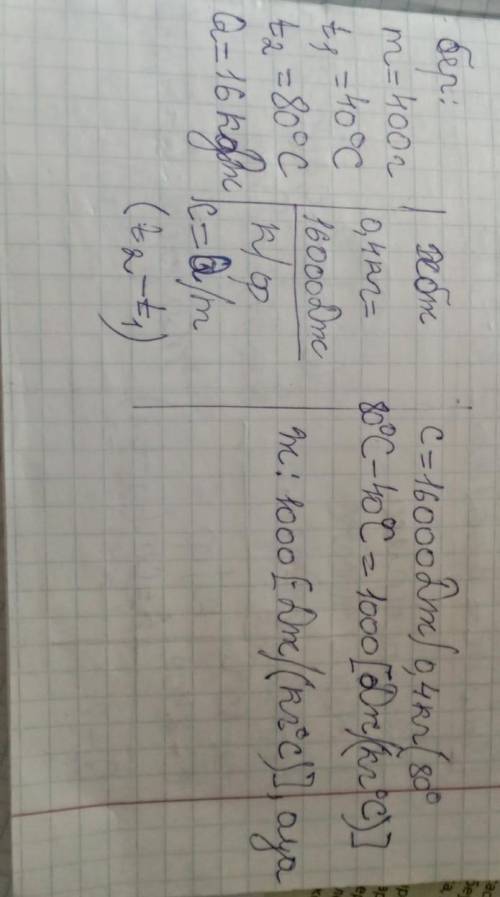 бер:
m=400г
t₁ =40°C
t₂ =80°C
Q=16кДж
хбж
0,4кг=
16000Дж
к/ф
c=Q/m
(t₂-t₁)
c=16000Дж/0,4кг(80°
80°C-40°C=1000[Дж/(кг°C)]
ж: 1000[Дж/(кг°C)], ауа